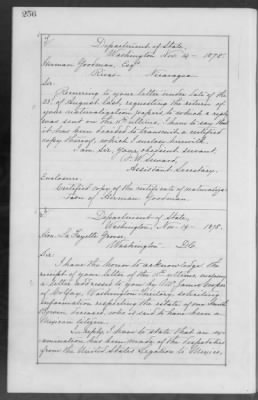 256
Department of State,
Washington Nov. 14 - 1878
Herman Goodman, Esq.
Rivas - Nicaragua
Sir:
Referring to your letter under date of the
of August last, requesting the return of
your naturalization papers, to which a reply
was sent on the ultimo, I have to say that
it has been decided to transmit a certified
copy thereof, which I enclose herewith.
I am Sir, your obedient servant,
F. W. Seward,
Assistant Secretary.
Enclosure.
Certified copy of the certificate of naturaliza-
tion of Herman Goodman.
Department of State,
Washington, Nov. 14 - 1878.
Hon. La Fayette Grover,
Washington D.C.
Sir:
I have the honor to acknowledge the
receipt of your letter of the ultimo,
a letter addressed to you by James Cooper
of Colfax, Washington Territory, soliciting
information respecting the estate of one
Brown, deceased, who is said to have been a
Mexican citizen.
In reply I have to state that an ex-
amination has been made of the despatches
from the United States Legation to Mexico,